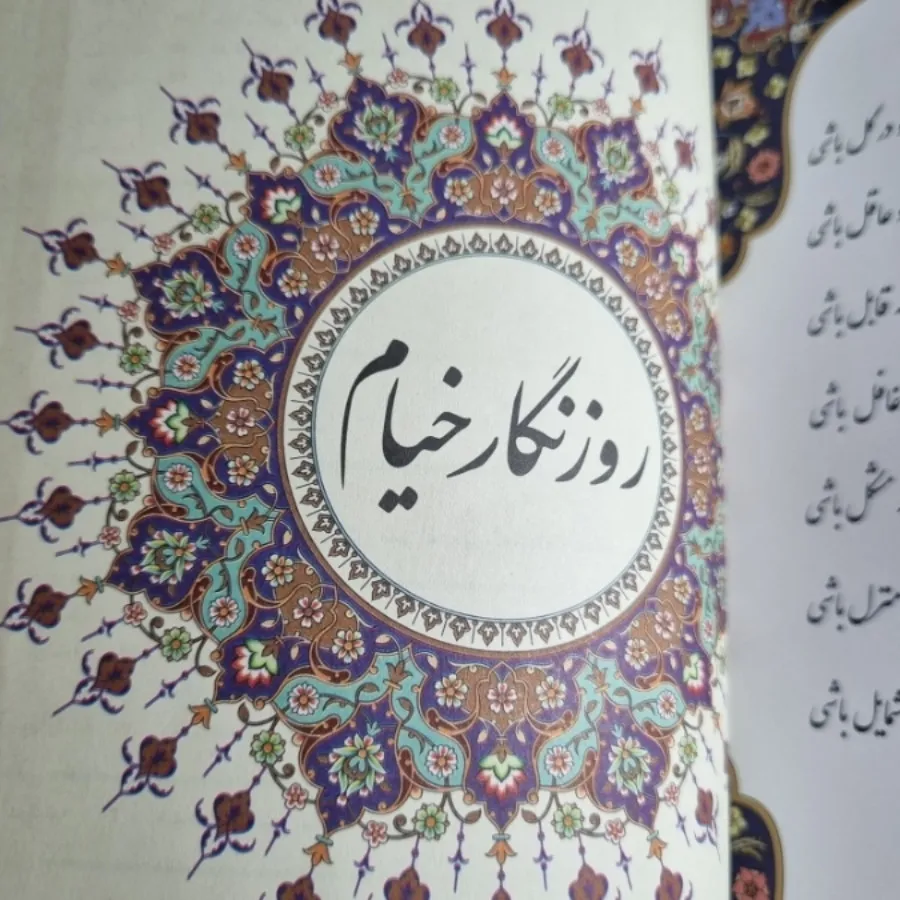 روزنگار خیام
در گل باشی
عاقل باشی
قابل باشی
غافل باشی
مشکل باشی
منزل باشی
شمایل باشی